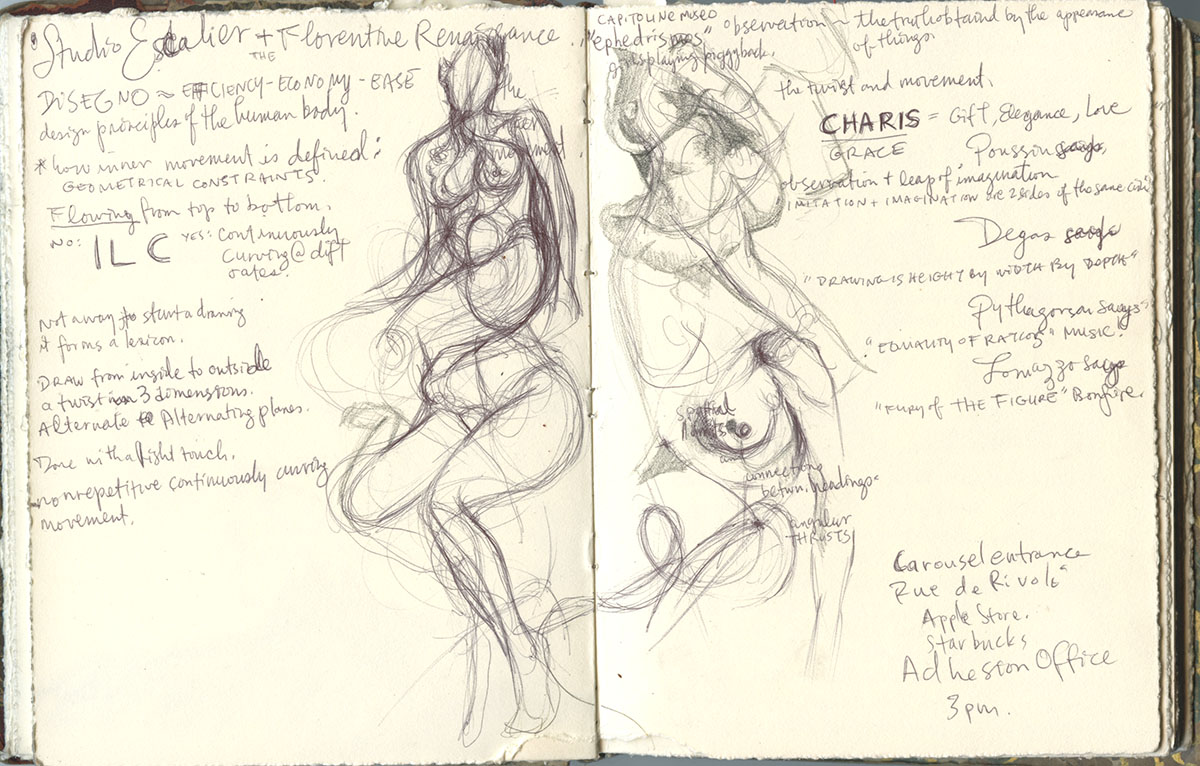 Studio Escalier + The Florentine Renaissance
DISEGNO ≈ EFFICIENCY-ECONOMY-EASE
design principles of the human body.
* how inner movement is defined:
GEOMETRICAL CONSTRAINTS.
Flowing from top to bottom.
NO: ILC YES: Continuously
Curving @ diff
rates.
Not a way to start a drawing
it forms a lexicon.
DRAW from inside to outside
a twist in 3 dimensions.
Alternate Alternating planes.
Done with a light touch.
nonrepetitive continuously curving
movement.
the
inner
movement
CAPITOLINE MUSEO
"ephedrismos"
playing piggyback.
observation ~ the truth obtained by the appearance
of things.
the twist and movement.
CHARIS = Gift, Elegance, Love
GRACE
Poussin says,
observation + leap of imagination
"IMITATION + IMAGINATION are 2 sides of the same coin"
Degas says
"DRAWING IS HEIGHT BY WIDTH BY DEPTH"
Pythagoras says
"EQUALITY OF RATIOS" MUSIC!
Lomazzo says
"FURY OF THE FIGURE" Bonfire.
spatial
and
connections
betwn. headings
angular
THRUSTS
Carousel entrance
Rue de Rivoli
Apple Store.
Starbucks
Adhesion Office
3pm.